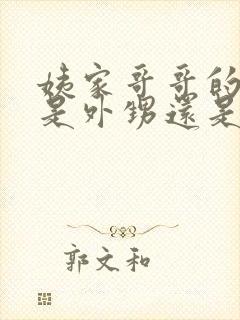 姨家哥哥的
是外甥還是
郭文和